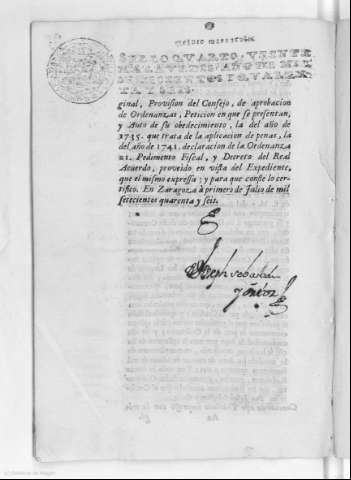 SELLO QVARTO, VEINTE
MARAVEDIS, AÑO DE MIL
SETECIENTOS Y QVAREN-
TA Y SEIS.
ginal, Provision del Consejo, de aprobacion
de Ordenanzas, Peticion en que se presentan,
y Auto de su obedecimiento, la del año de
1735. que trata de la aplicacion de penas, la
del año de 1741. declaracion de la Ordenanza
21. Pedimento Fiscal, y Decreto del Real
Acuerdo, proveido en vista del Expediente,
que el mismo expressa; y para que conste lo cer-
tifico. En Zaragoza à primero de Julio de mil
setecientos quarenta y seis.
Joseph
y